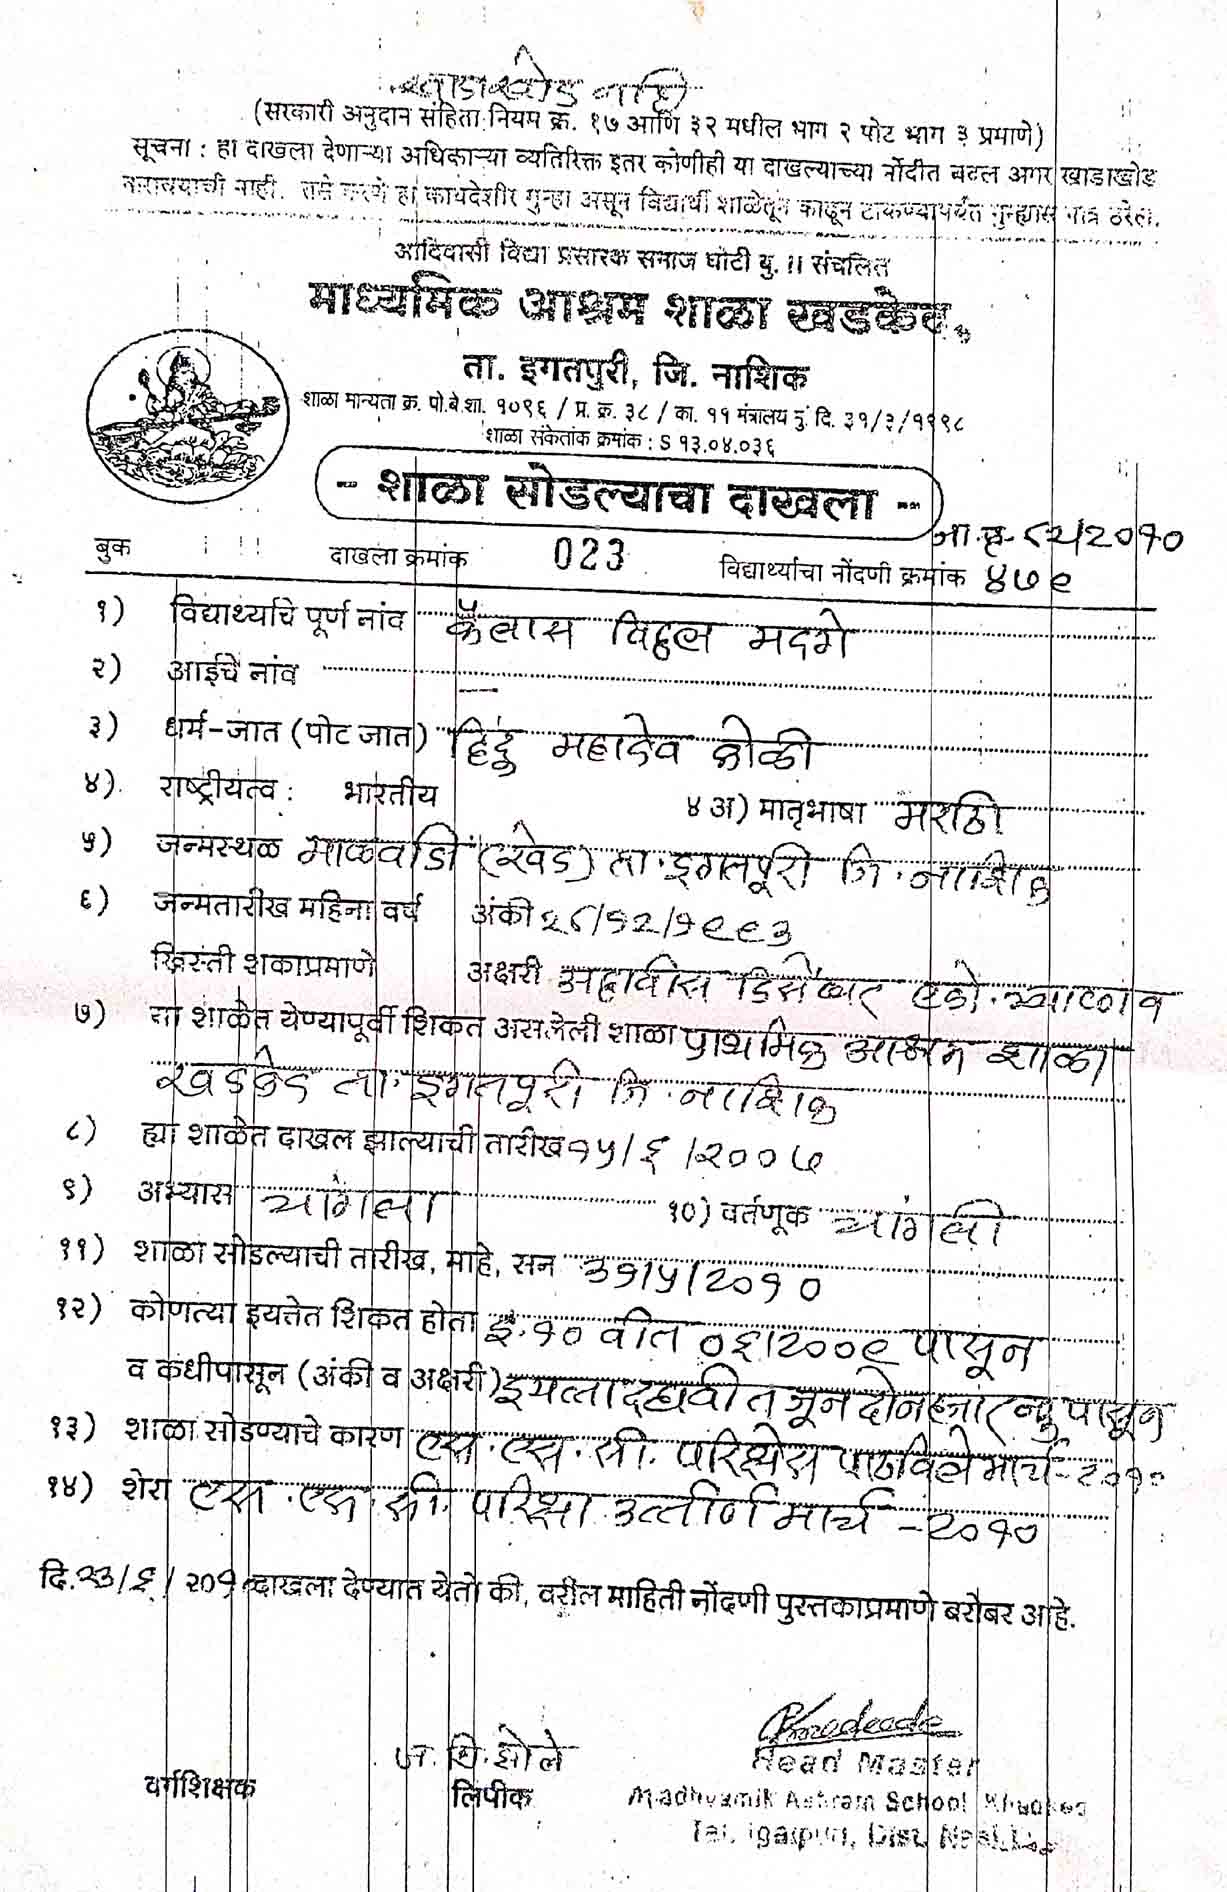 खाडाखोड नाही
(सरकारी अनुदान संहिता नियम क्र. १७ आणि ३२ मधील भाग २ पोट भाग ३ प्रमाणे)
सूचना : हा दाखला देणाऱ्या अधिकाऱ्या व्यतिरिक्त इतर कोणीही या दाखल्याच्या नोंदीत बदल अगर खाडाखोड
करावयाची नाही. तसे करणे हा कायदेशीर गुन्हा असून विद्यार्थी शाळेतून काढून टाकण्यापर्यंत गुन्ह्यास पात्र ठरेल.
आदिवासी विद्या प्रसारक समाज घोटी बु.॥ संचलित
माध्यमिक आश्रम शाळा खडकेद
ता. इगतपुरी, जि. नाशिक
शाळा मान्यता क्र. पो.बे.शा. १०९६ / प्र. क्र. ३८ / का. ११ मंत्रालय मुं. दि. ३१/३/१९९८
शाळा संकेतांक क्रमांक : S १३.०४.०३६
- शाळा सोडल्याचा दाखला -
जा.क्र- ८२/२०१०
बुक दाखला क्रमांक 023 विद्यार्थ्याचा नोंदणी क्रमांक ४७९
१) विद्यार्थ्याचे पूर्ण नांव कैलास विठ्ठल मदगे
२) आईचे नांव —
३) धर्म-जात (पोट जात) हिंदु महादेव कोळी
४) राष्ट्रीयत्व : भारतीय ४ अ) मातृभाषा मराठी
५) जन्मस्थळ माळवाडी (खेड) ता. इगतपूरी जि. नाशिक
६) जन्मतारीख महिना वर्ष अंकी २८/१२/१९९३
ख्रिस्ती शकाप्रमाणे अक्षरी अठ्ठावीस डिसेंबर एको. त्र्याण्णव
७) या शाळेत येण्यापूर्वी शिकत असलेली शाळा प्राथमिक आश्रम शाळा
खडकेद ता. इगतपूरी जि. नाशिक
८) ह्या शाळेत दाखल झाल्याची तारीख १५/६/२००७
९) अभ्यास चांगला १०) वर्तणूक चांगली
११) शाळा सोडल्याची तारीख, माहे, सन ३१/५/२०१०
१२) कोणत्या इयत्तेत शिकत होता इ. १० वीत ०६/२००९ पासून
व कधीपासून (अंकी व अक्षरी) इयत्ता दहावीत जून दोन हजार नऊ पासून
१३) शाळा सोडण्याचे कारण एस. एस. सी. परिक्षेस पाठविले मार्च-२०१०
१४) शेरा एस. एस. सी. परिक्षा उत्तीर्ण मार्च - २०१०
दि. २३/६/२०१० दाखला देण्यात येतो की, वरील माहिती नोंदणी पुस्तकाप्रमाणे बरोबर आहे.
वर्गशिक्षक लिपीक Head Master
Madhyamik Ashram School Khadked
Tal. Igatpuri, Dist. Nashik